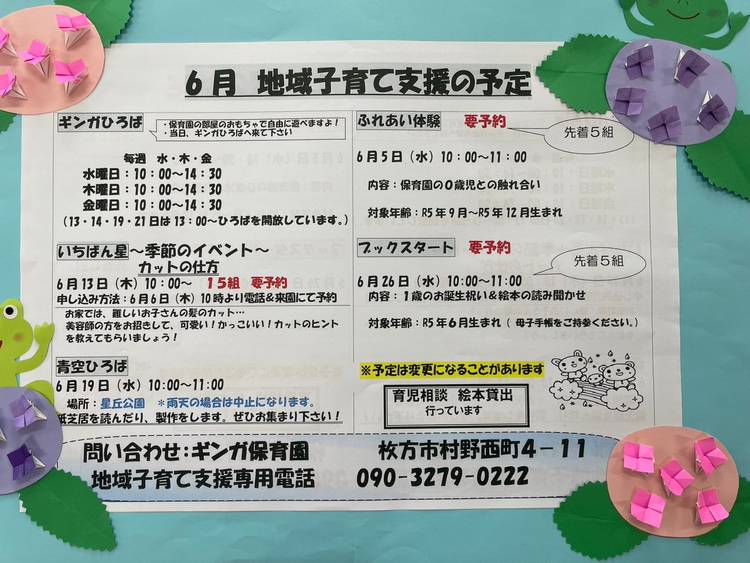 6月 地域子育て支援の予定
ギンガひろば
・保育園の部屋のおもちゃで自由に遊べますよ!
・当日、ギンガひろばへ来て下さい
毎週 水・木・金
水曜日:10:00~14:30
木曜日:10:00~14:30
金曜日:10:00~14:30
(13・14・19・21日は13:00~ひろばを開放しています。)
いちばん星~季節のイベント~
カットの仕方
6月13日(木)10:00~ 15組 要予約
申し込み方法:6月6日(木)10時より電話&来園にて予約
お家では、難しいお子さんの髪のカット…
美容師の方をお招きして、可愛い!かっこいい!カットのヒント
を教えてもらいましょう!
青空ひろば
6月19日(水)10:00~11:00
場所:星丘公園 *雨天の場合は中止になります。
紙芝居を読んだり、製作をします。ぜひお集まり下さい!
ふれあい体験 要予約
先着5組
6月5日(水)10:00~11:00
内容:保育園の0歳児との触れ合い
対象年齢:R5年9月~R5年12月生まれ
ブックスタート 要予約
先着5組
6月26日(水)10:00~11:00
内容:1歳のお誕生祝い&絵本の読み聞かせ
対象年齢:R5年6月生まれ(母子手帳をご持参ください。)
※予定は変更になることがあります
育児相談 絵本貸出
行っています
問い合わせ:ギンガ保育園 枚方市村野西町4-11
地域子育て支援専用電話 090-3279-0222